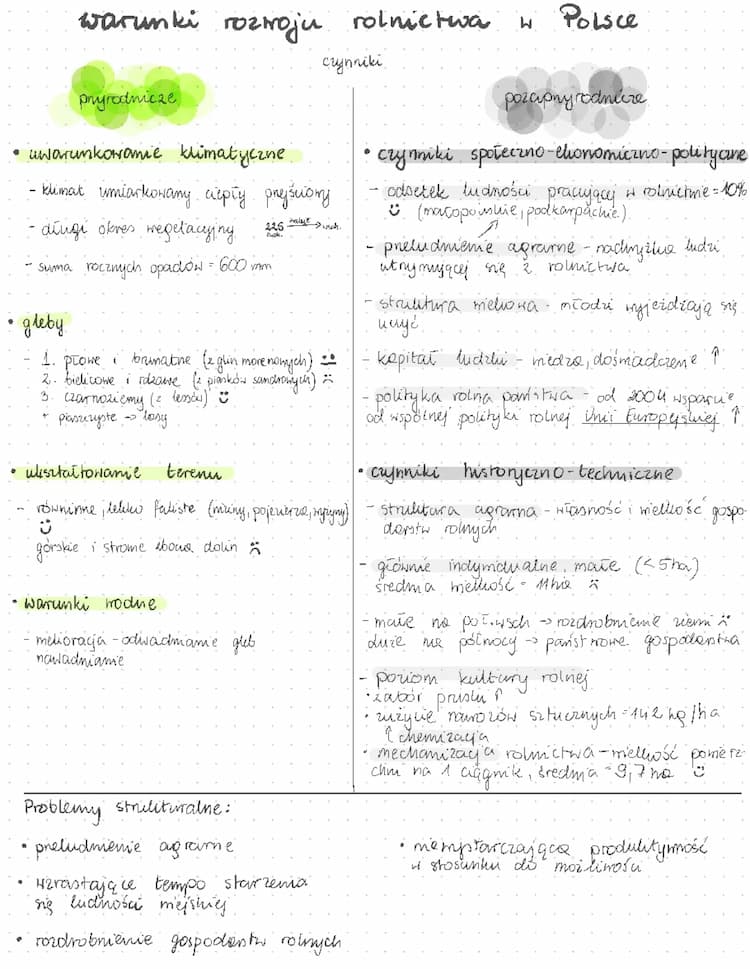 warunki rozwoju rolnictwa w Polsce
czynniki
przyrodnicze
• uwarunkowanie klimatyczne
- klimat umiarkowany ciepły przejściowy
- długi okres wegetacyjny 225
- suma rocznych opadów = 600 mm
• gleby
- 1. płowe i brunatne (z glin morenowych)
2. bielicowe i rdzawe (z piasków sandrowych)
3. czarnoziemy (z lessów)
+ piaszczyste → lasy
• ukształtowanie terenu
- równinne, lekko faliste (niziny, pojezierza, wyżyny)
górskie i strome zbocza dolin
• warunki wodne
- melioracja - odwadnianie gleb
nawadnianie
pozaprzyrodnicze
• czynniki społeczno-ekonomiczno-polityczne
- odsetek ludności pracującej w rolnictwie = 10%
(małopolskie, podkarpackie)
- przeludnienie agrarne - nadwyżka ludzi
utrzymującej się z rolnictwa
- struktura wiekowa - młodzi wyjeżdżają się
uczyć
- kapitał ludzki - wiedza, doświadczenie ↑
- polityka rolna państwa - od 2004 wsparcie
od wspólnej polityki rolnej Unii Europejskiej ↑
• czynniki historyczno-techniczne
- struktura agrarna - własność i wielkość gospo-
darstw rolnych
- głównie indywidualne, małe (<5ha)
średnia wielkość = 11ha
- małe na poł.wsch → rozdrobnienie ziemi
duże na północy → państwowe gospodarstwa
- poziom kultury rolnej
• zabór pruski ↑
• zużycie nawozów sztucznych = 142 kg/ha
↑ chemizacja
• mechanizacja rolnictwa - wielkość powierz-
chni na 1 ciągnik, średnia = 9,7 ha
Problemy strukturalne:
• przeludnienie agrarne
• wzrastające tempo starzenia
się ludności miejskiej
• rozdrobnienie gospodarstw rolnych
• niewystarczająca produktywność
w stosunku do możliwości